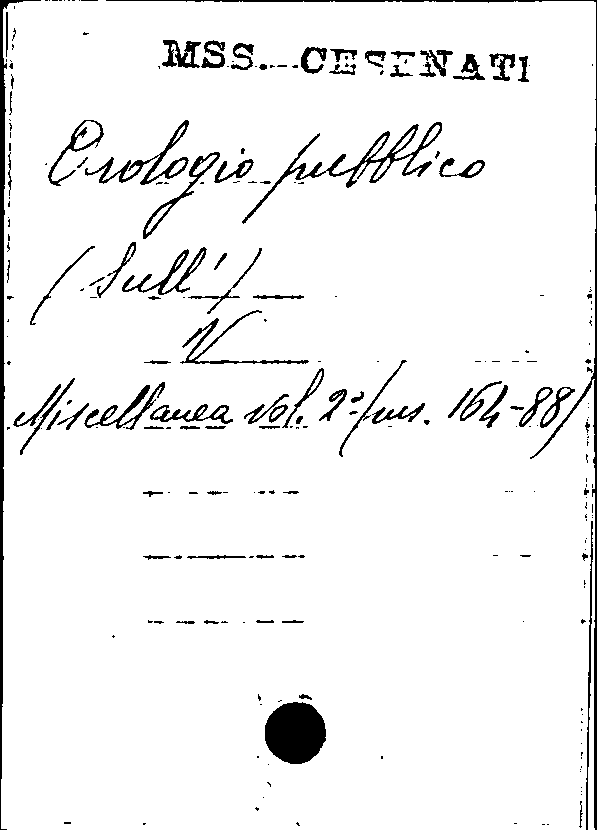 MSS. CESENATI
Orologio pubblico
(Sull')
V
Miscellanea vol. 2º (ms. 164-88)